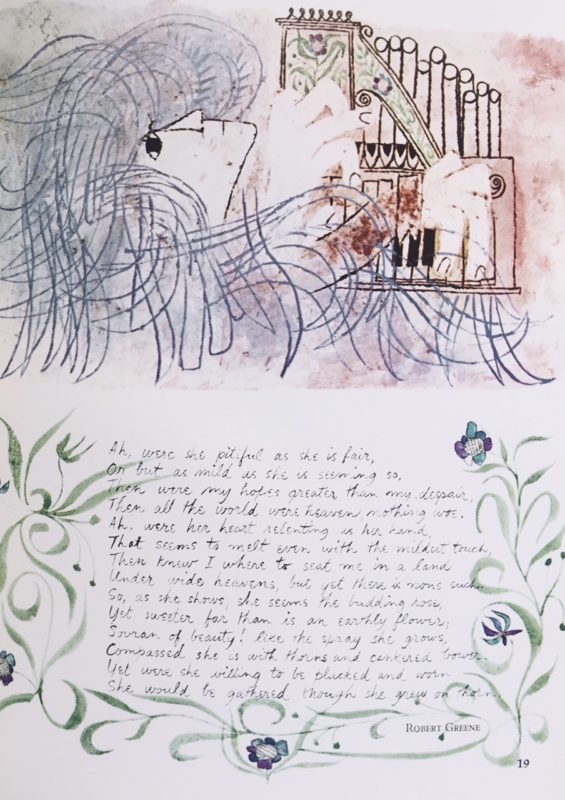 Ah, were she pitiful as she is fair,
Or but as mild as she is seeming so,
Then were my hopes greater than my despair,
Then all the world were heaven, nothing woe.
Ah, were her heart relenting as her hand,
That seems to melt even with the mildest touch,
Then knew I where to seat me in a land
Under wide heavens, but yet there is none such.
So, as she shows, she seems the budding rose,
Yet sweeter far than is an earthly flower;
Sovran of beauty! like the spray she grows,
Compassed she is with thorns and cankered bower.
Yet were she willing to be plucked and worn
She would be gathered though she grew on thorn.
ROBERT GREENE
19